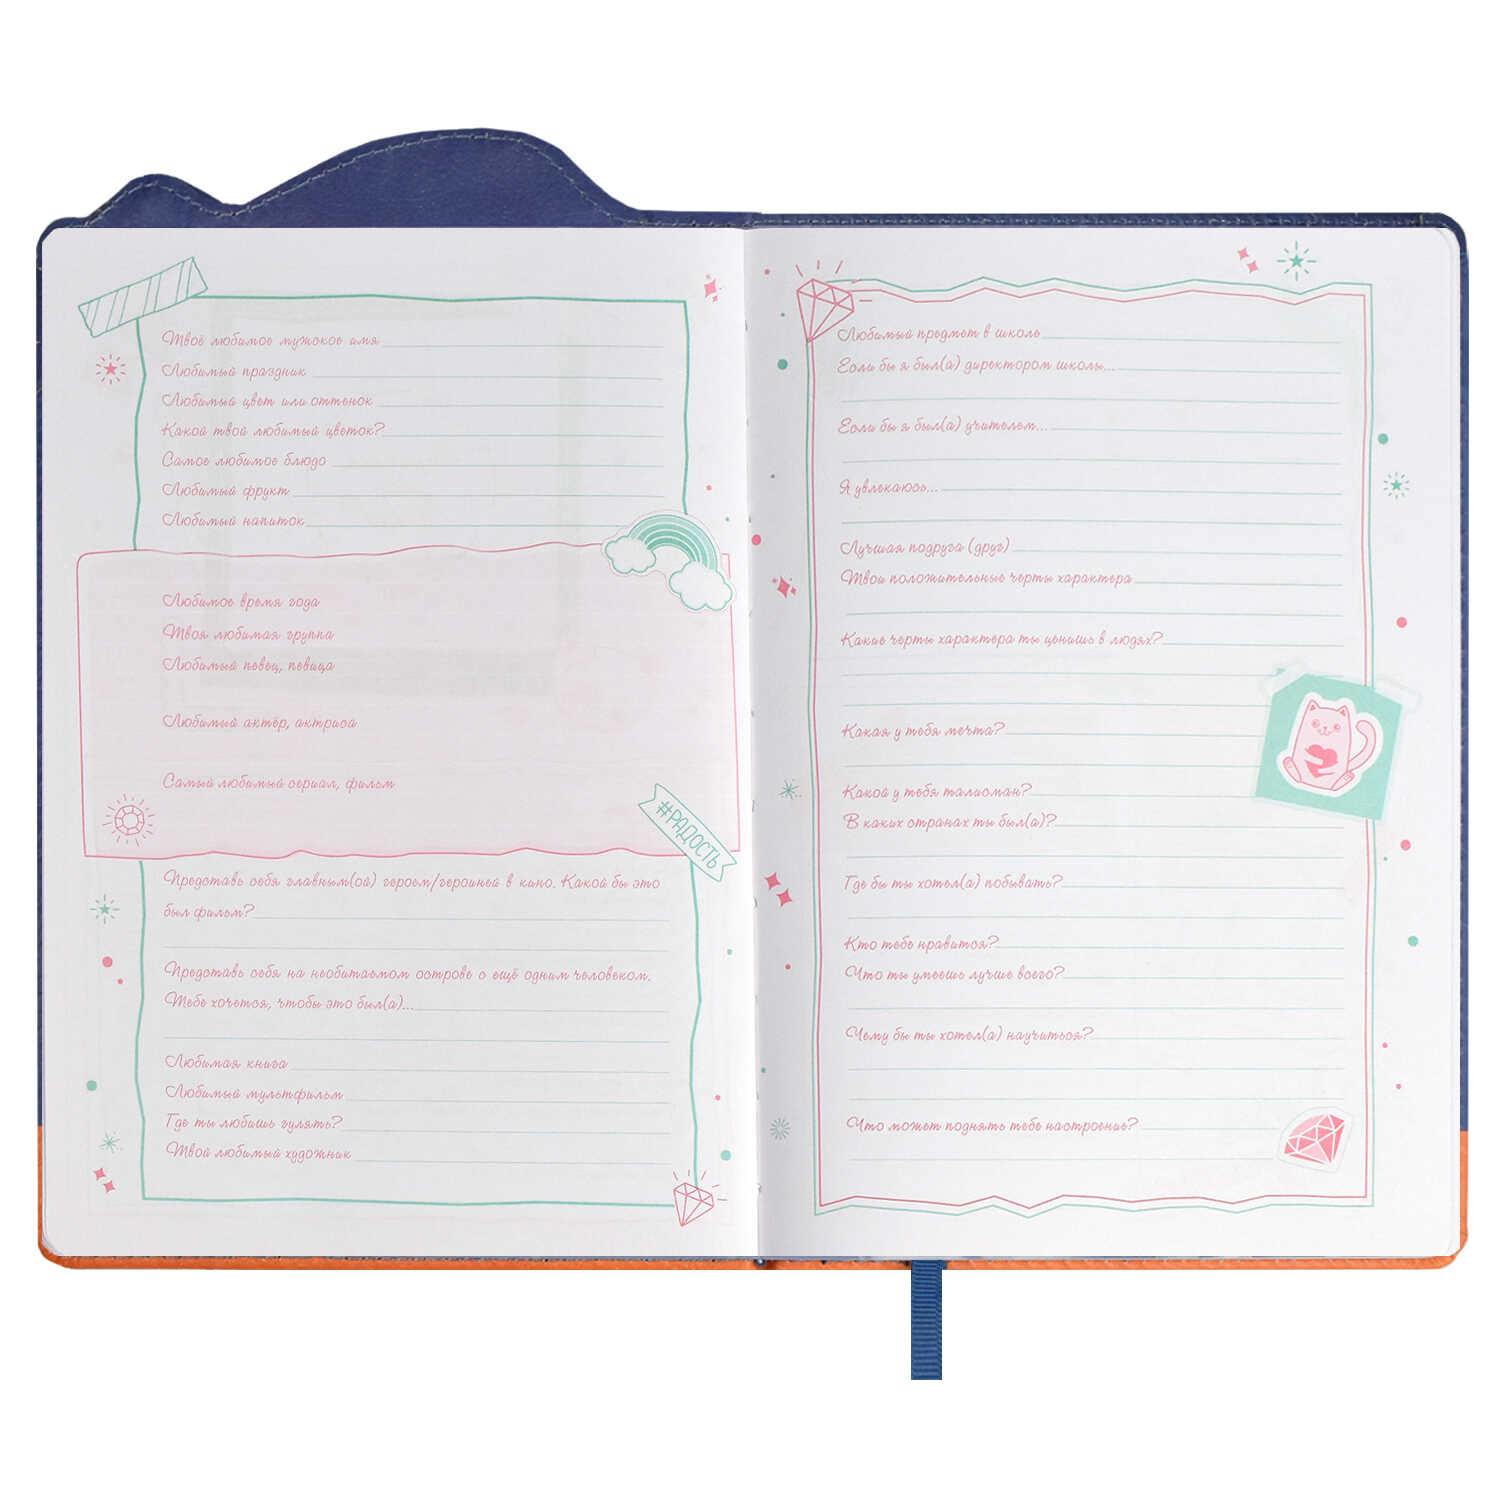 Твоё любимое мужское имя
Любимый праздник
Любимый цвет или оттенок
Какой твой любимый цветок?
Самое любимое блюдо
Любимый фрукт
Любимый напиток
Любимое время года
Твоя любимая группа
Любимый певец, певица
Любимый актёр, актриса
Самый любимый сериал, фильм
#РАДОСТЬ
Представь себя главным(ой) героем/героиней в кино. Какой бы это
был фильм?
Представь себя на необитаемом острове с ещё одним человеком.
Тебе хочется, чтобы это был(а)...
Любимая книга
Любимый мультфильм
Где ты любишь гулять?
Твой любимый художник
Любимый предмет в школе
Если бы я был(а) директором школы...
Если бы я был(а) учителем...
Я увлекаюсь...
Лучшая подруга (друг)
Твои положительные черты характера
Какие черты характера ты ценишь в людях?
Какая у тебя мечта?
Какой у тебя талисман?
В каких странах ты был(а)?
Где бы ты хотел(а) побывать?
Кто тебе нравится?
Что ты умеешь лучше всего?
Чему бы ты хотел(а) научиться?
Что может поднять тебе настроение?